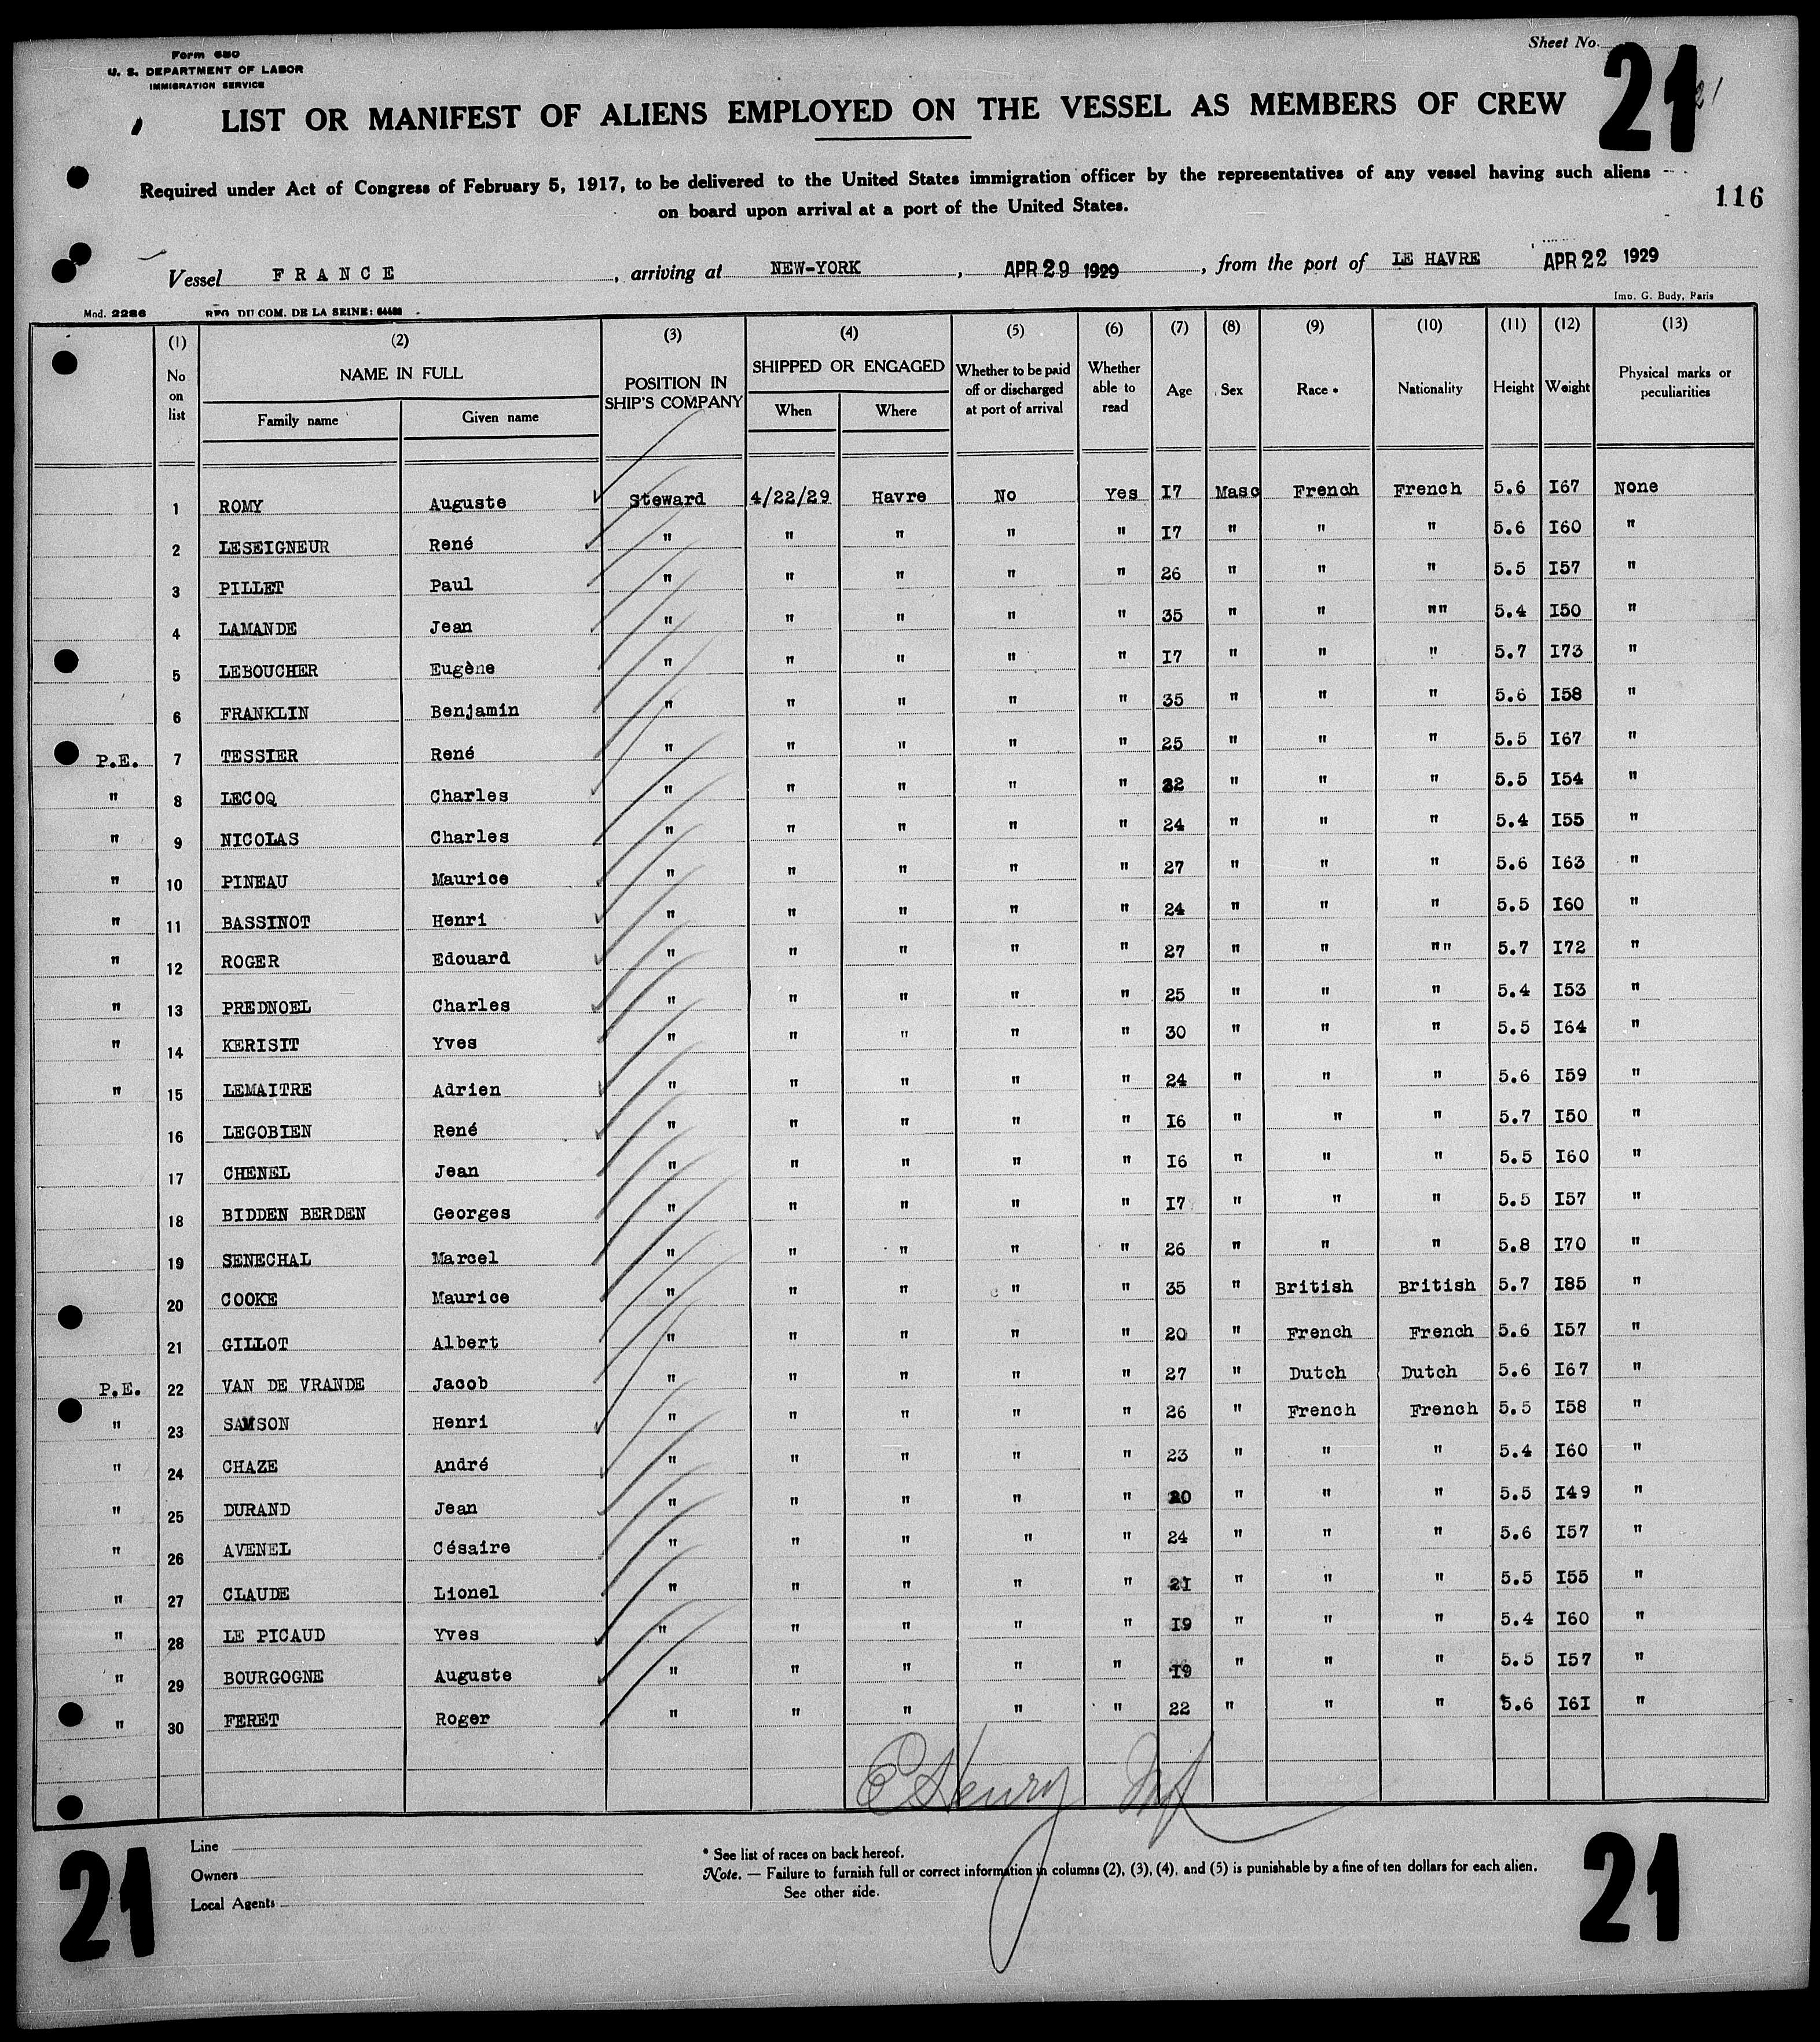 Form 680
U. S. DEPARTMENT OF LABOR
IMMIGRATION SERVICE
Sheet No.
21
21
LIST OR MANIFEST OF ALIENS EMPLOYED ON THE VESSEL AS MEMBERS OF CREW
Required under Act of Congress of February 5, 1917, to be delivered to the United States immigration officer by the representatives of any vessel having such aliens
on board upon arrival at a port of the United States.
116
Vessel FRANCE, arriving at NEW-YORK, APR 29 1929, from the port of LE HAVRE APR 22 1929
Mod. 2286 REG. DU COM. DE LA SEINE: Imp. G. Budy, Paris
(1) (2) (3) (4) (5) (6) (7) (8) (9) (10) (11) (12) (13)
No on list NAME IN FULL Family name Given name POSITION IN SHIP'S COMPANY SHIPPED OR ENGAGED When Where Whether to be paid off or discharged at port of arrival Whether able to read Age Sex Race * Nationality Height Weight Physical marks or peculiarities
1 ROMY Auguste Steward 4/22/29 Havre No Yes I7 Masc French French 5.6 I67 None
2 LESEIGNEUR René " " " " " I7 " " " 5.6 I60 "
3 PILLET Paul " " " " " 26 " " " 5.5 I57 "
4 LAMANDE Jean " " " " " 35 " " "" 5.4 I50 "
5 LEBOUCHER Eugène " " " " " I7 " " " 5.7 I73 "
6 FRANKLIN Benjamin " " " " " 35 " " " 5.6 I58 "
P.E. 7 TESSIER René " " " " " 25 " " " 5.5 I67 "
" 8 LECOQ Charles " " " " " 32 " " " 5.5 I54 "
" 9 NICOLAS Charles " " " " " 24 " " " 5.4 I55 "
" 10 PINEAU Maurice " " " " " 27 " " " 5.6 I63 "
" 11 BASSINOT Henri " " " " " 24 " " " 5.5 I60 "
" 12 ROGER Edouard " " " " " 27 " " "" 5.7 I72 "
" 13 PREDNOEL Charles " " " " " 25 " " " 5.4 I53 "
" 14 KERISIT Yves " " " " " 30 " " " 5.5 I64 "
" 15 LEMAITRE Adrien " " " " " 24 " " " 5.6 I59 "
16 LEGOBIEN René " " " " " I6 " " " 5.7 I50 "
17 CHENEL Jean " " " " " I6 " " " 5.5 I60 "
18 BIDDEN BERDEN Georges " " " " " I7 " " " 5.5 I57 "
19 SENECHAL Marcel " " " " " 26 " " " 5.8 I70 "
20 COOKE Maurice " " " " " 35 " British British 5.7 I85 "
21 GILLOT Albert " " " " " 20 " French French 5.6 I57 "
P.E. 22 VAN DE VRANDE Jacob " " " " " 27 " Dutch Dutch 5.6 I67 "
" 23 SAMSON Henri " " " " " 26 " French French 5.5 I58 "
" 24 CHAZE André " " " " " 23 " " " 5.4 I60 "
" 25 DURAND Jean " " " " " 20 " " " 5.5 I49 "
" 26 AVENEL Césaire " " " " " 24 " " " 5.6 I57 "
" 27 CLAUDE Lionel " " " " " 21 " " " 5.5 I55 "
" 28 LE PICAUD Yves " " " " " I9 " " " 5.4 I60 "
" 29 BOURGOGNE Auguste " " " " " I9 " " " 5.5 I57 "
" 30 FERET Roger " " " " " 22 " " " 5.6 I6I "
E Henry
Line
Owners
Local Agents
* See list of races on back hereof.
Note. — Failure to furnish full or correct information in columns (2), (3), (4), and (5) is punishable by a fine of ten dollars for each alien.
See other side.
21
21